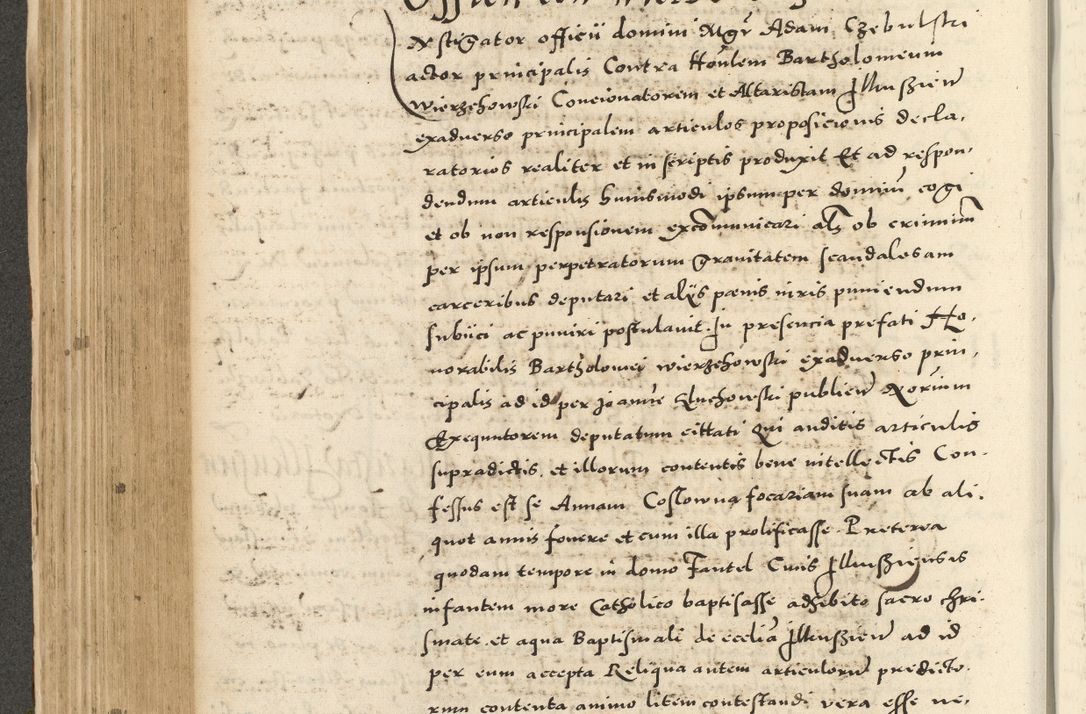 officii domini Mgr̃ Adam Czebulski
actor principalis Contra Honlem Bartholomeum
wierzchowski Concionatorem et Altaristam Illkusszien̄
exadverso principalem articulos proposicionis decla-
ratorios realiter et in scriptis produxit Et ad respon-
dendum articulis huiusmodi ipsum per dominū cogi
et ob non responsionem excōmunicari als̄ ob criminum
per ipsum perpetratorum Gravitatem scandalosam
carceribus deputari et alijs pœnis iuris puniendum
subiici ac puniri postulavit. In presencia prefati Ho-
norabilis Bartholomei wierzchowski exadverso prin-
cipalis ad id per Joannē publicū
Exequutorem deputatum cittati Qui auditis articulis
supradictis, et illorum contentis bene intellectis Con-
fessus est se Annam Coslowna focariam suam ab ali-
quot annis fovere et cum illa prolificasse. Preterea
quodam tempore in domo Fantel Civis Illkussziensis
infantem more Catholico baptisasse adhibito sacro chri-
smate et aqua Baptismali de ecclīa Illkusszien̄ ad id
per eum accepta Reliqua autem articulorū predicto-
rum contenta animo litem contestandi vera esse ne-